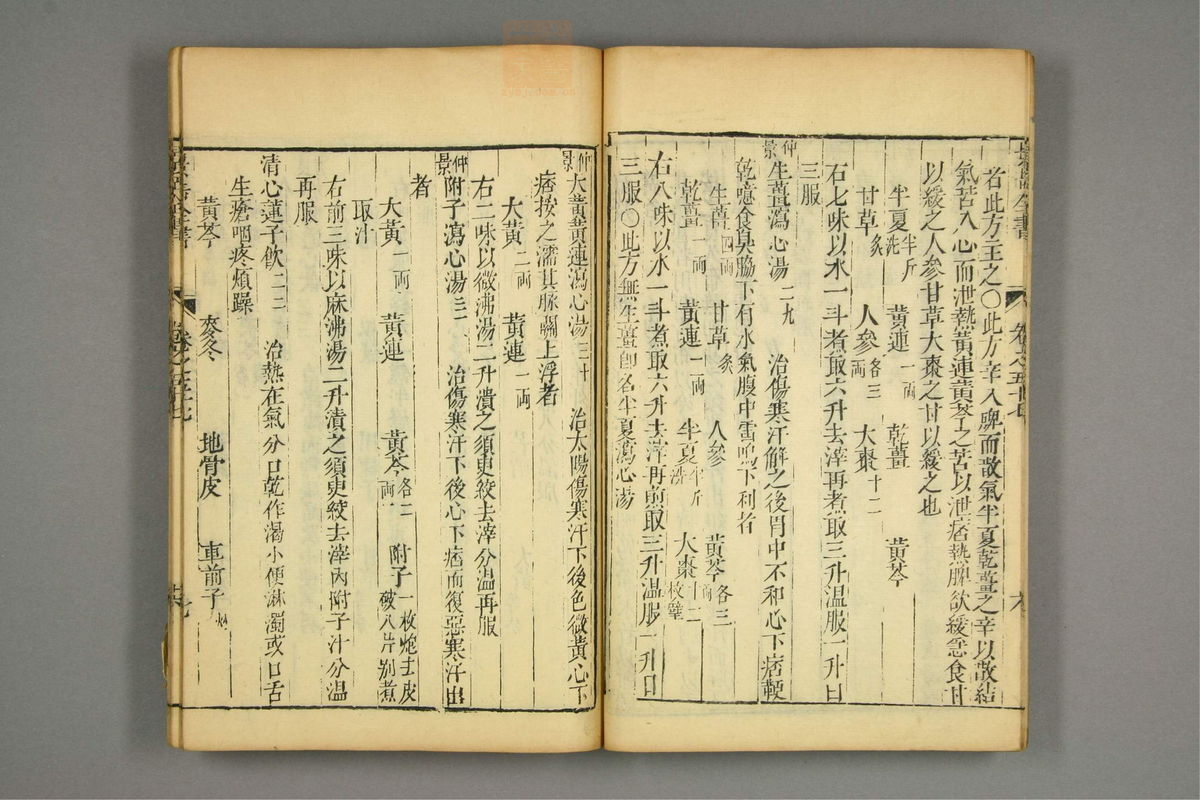 者此方主之〇此方辛入脾而散氣半夏乾薑之辛以散結
氣苦入心而泄熱黃連黃芩之苦以泄痞熱脾欲緩急食甘
以緩之人參甘草大棗之甘以緩之也
半夏半斤洗 黃連一兩 乾薑 黃芩
甘草炙 人參各三兩 大棗十二
右七味以水一斗煮取六升去滓再煮取三升温服一升日
三服
仲景生薑瀉心湯二九 治傷寒汗解之後胃中不和心下痞鞕
乾噫食臭脇下有水氣腹中雷鳴下利者
生薑四兩 甘草炙 人參 黃芩各三兩
乾薑一兩 黃連一兩 半夏半斤洗 大棗十二枚擘
右八味以水一斗煮取六升去滓再煎取三升温服一升日
三服〇此方無生薑即名半夏瀉心湯
仲景大黃黃連瀉心湯三十 治太陽傷寒汗下後色微黃心下
痞按之濡其脉關上浮者
大黃二兩 黃連一兩
右二味以微沸湯二升漬之須臾絞去滓分温再服
仲景附子瀉心湯三一 治傷寒汗下後心下痞而復惡寒汗出
者
大黃二兩 黃連 黃芩各一兩 附子一枚炮去皮破八片别煮
取汁
右前三味以麻沸湯二升漬之須臾絞去滓內附子汁分温
再服
清心蓮子飲三二 治熱在氣分口乾作渴小便淋濁或口舌
生瘡咽疼煩躁
黃芩 麥冬 地骨皮 車前子炒